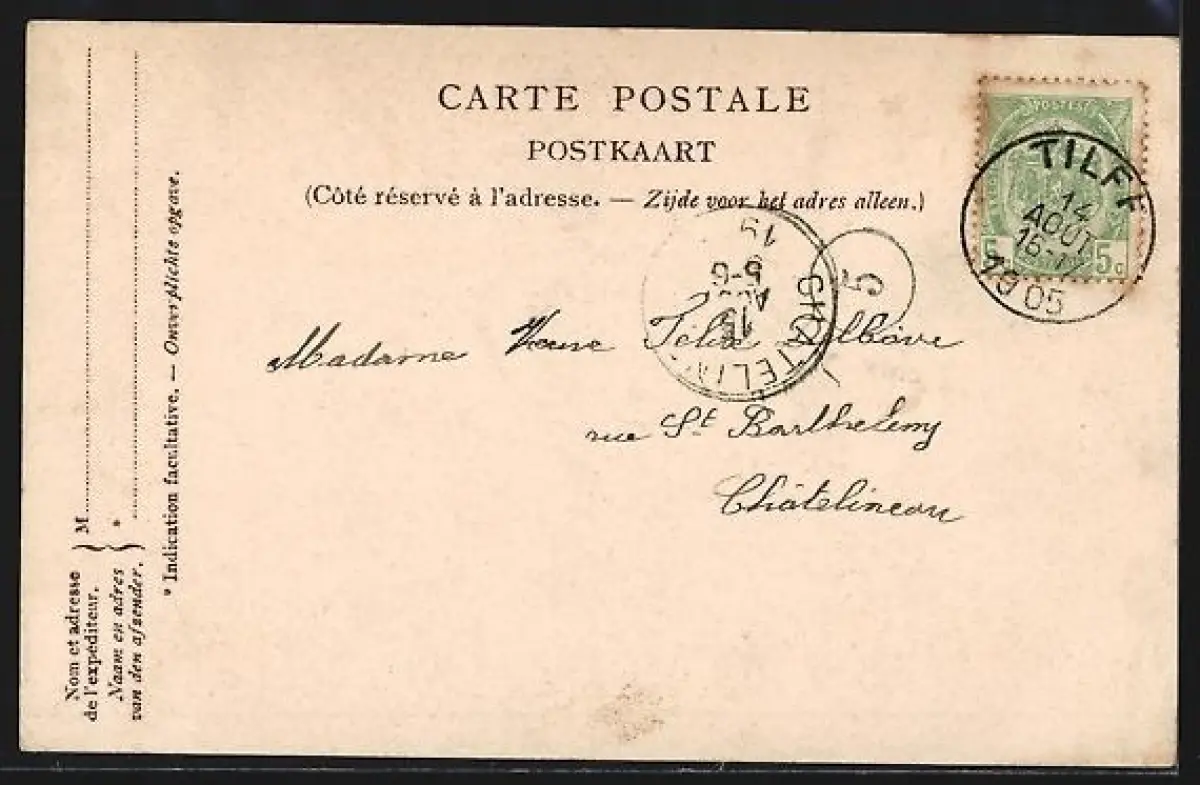 CARTE POSTALE
POSTKAART
(Côté réservé à l'adresse. — Zijde voor het adres alleen.)
POSTES
5 5c
TILFF
14
AOUT
16-17
1905
CHATELIN
15
AOU
5-6
19
5
Madame Veuve Félix Delbove
rue St Barthelemy
Châtelineau
Nom et adresse
de l'expéditeur.
Naam en adres
van den afzender.
M
*
* Indication facultative. — Onverplichte opgave.